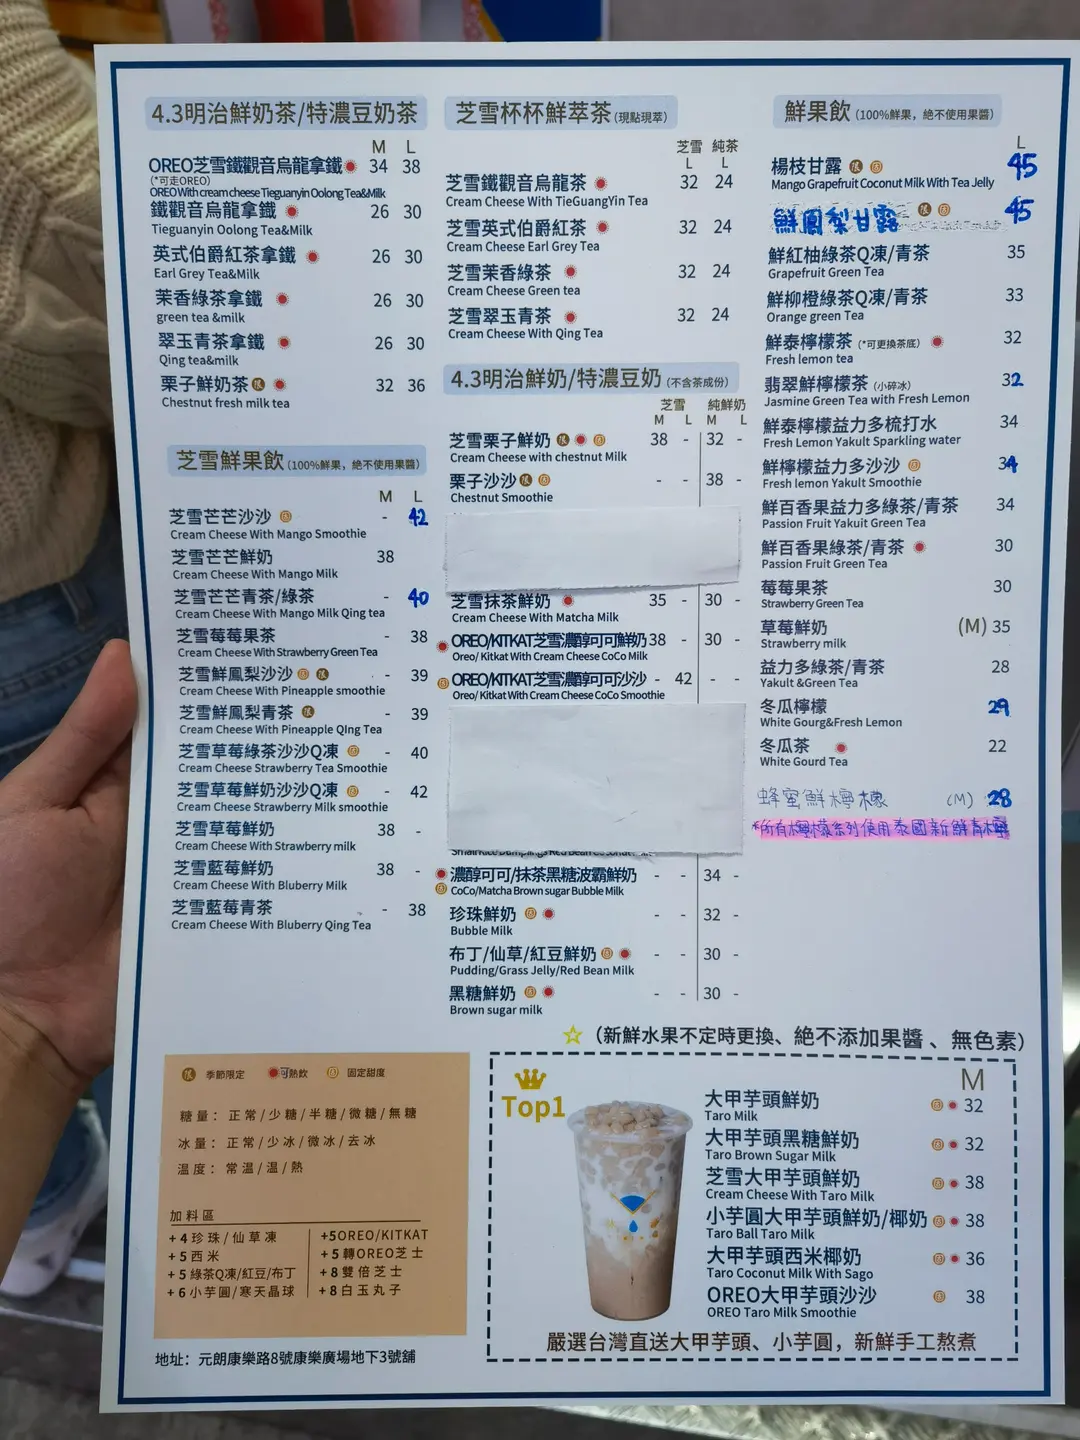 4.3明治鮮奶茶/特濃豆奶茶
M L
OREO芝雪鐵觀音烏龍拿鐵 34 38
(*可走OREO)
OREO With cream cheese Tieguanyin Oolong Tea&Milk
鐵觀音烏龍拿鐵 26 30
Tieguanyin Oolong Tea&Milk
英式伯爵紅茶拿鐵 26 30
Earl Grey Tea&Milk
茉香綠茶拿鐵 26 30
green tea &milk
翠玉青茶拿鐵 26 30
Qing tea&milk
栗子鮮奶茶 限 32 36
Chestnut fresh milk tea
芝雪鮮果飲 (100%鮮果，絕不使用果醬)
M L
芝雪芒芒沙沙 固 - 42
Cream Cheese With Mango Smoothie
芝雪芒芒鮮奶 38
Cream Cheese With Mango Milk
芝雪芒芒青茶/綠茶 - 40
Cream Cheese With Mango Milk Qing tea
芝雪莓莓果茶 - 38
Cream Cheese With Strawberry Green Tea
芝雪鮮鳳梨沙沙 固 限 - 39
Cream Cheese With Pineapple smoothie
芝雪鮮鳳梨青茶 限 - 39
Cream Cheese With Pineapple QIng Tea
芝雪草莓綠茶沙沙Q凍 固 - 40
Cream Cheese Strawberry Tea Smoothie
芝雪草莓鮮奶沙沙Q凍 固 - 42
Cream Cheese Strawberry Milk smoothie
芝雪草莓鮮奶 38 -
Cream Cheese With Strawberry milk
芝雪藍莓鮮奶 38 -
Cream Cheese With Bluberry Milk
芝雪藍莓青茶 - 38
Cream Cheese With Bluberry Qing Tea
芝雪杯杯鮮萃茶 (現點現萃)
芝雪 純茶
L L
芝雪鐵觀音烏龍茶 32 24
Cream Cheese With TieGuangYin Tea
芝雪英式伯爵紅茶 32 24
Cream Cheese Earl Grey Tea
芝雪茉香綠茶 32 24
Cream Cheese Green tea
芝雪翠玉青茶 32 24
Cream Cheese With Qing Tea
4.3明治鮮奶/特濃豆奶 (不含茶成份)
芝雪 純鮮奶
M L M L
芝雪栗子鮮奶 限 固 38 - 32 -
Cream Cheese with chestnut Milk
栗子沙沙 限 固 - - 38 -
Chestnut Smoothie
芝雪抹茶鮮奶 35 - 30 -
Cream Cheese With Matcha Milk
OREO/KITKAT芝雪濃醇可可鮮奶 38 - 30 -
Oreo/ Kitkat With Cream Cheese CoCo Milk
固 OREO/KITKAT芝雪濃醇可可沙沙 - 42 - -
Oreo/ Kitkat With Cream Cheese CoCo Smoothie
濃醇可可/抹茶黑糖波霸鮮奶 - - 34 -
固 CoCo/Matcha Brown sugar Bubble Milk
珍珠鮮奶 固 - - 32 -
Bubble Milk
布丁/仙草/紅豆鮮奶 固 - - 30 -
Pudding/Grass Jelly/Red Bean Milk
黑糖鮮奶 固 - - 30 -
Brown sugar milk
鮮果飲 (100%鮮果，絕不使用果醬)
L
楊枝甘露 限 固 45
Mango Grapefruit Coconut Milk With Tea Jelly
鮮鳳梨甘露 限 固 45
鮮紅柚綠茶Q凍/青茶 35
Grapefruit Green Tea
鮮柳橙綠茶Q凍/青茶 33
Orange green Tea
鮮泰檸檬茶 (*可更換茶底) 32
Fresh lemon tea
翡翠鮮檸檬茶 (小碎冰) 32
Jasmine Green Tea with Fresh Lemon
鮮泰檸檬益力多梳打水 34
Fresh Lemon Yakult Sparkling water
鮮檸檬益力多沙沙 固 34
Fresh lemon Yakult Smoothie
鮮百香果益力多綠茶/青茶 34
Passion Fruit Yakuit Green Tea
鮮百香果綠茶/青茶 30
Passion Fruit Green Tea
莓莓果茶 30
Strawberry Green Tea
草莓鮮奶 (M) 35
Strawberry milk
益力多綠茶/青茶 28
Yakult &Green Tea
冬瓜檸檬 29
White Gourg&Fresh Lemon
冬瓜茶 22
White Gourd Tea
蜂蜜鮮檸檬 (M) 28
*所有檸檬系列使用泰國新鮮青檸
☆ (新鮮水果不定時更換、絕不添加果醬、無色素)
限 季節限定 可熱飲 固 固定甜度
糖量：正常/少糖/半糖/微糖/無糖
冰量：正常/少冰/微冰/去冰
溫度：常溫/溫/熱
加料區
+4珍珠/仙草凍
+5西米
+5綠茶Q凍/紅豆/布丁
+6小芋圓/寒天晶球
+5OREO/KITKAT
+5轉OREO芝士
+8雙倍芝士
+8白玉丸子
地址：元朗康樂路8號康樂廣場地下3號舖
Top1
M
大甲芋頭鮮奶 固 32
Taro Milk
大甲芋頭黑糖鮮奶 固 32
Taro Brown Sugar Milk
芝雪大甲芋頭鮮奶 固 38
Cream Cheese With Taro Milk
小芋圓大甲芋頭鮮奶/椰奶 固 38
Taro Ball Taro Milk
大甲芋頭西米椰奶 固 36
Taro Coconut Milk With Sago
OREO大甲芋頭沙沙 固 38
OREO Taro Milk Smoothie
嚴選台灣直送大甲芋頭、小芋圓，新鮮手工熬煮